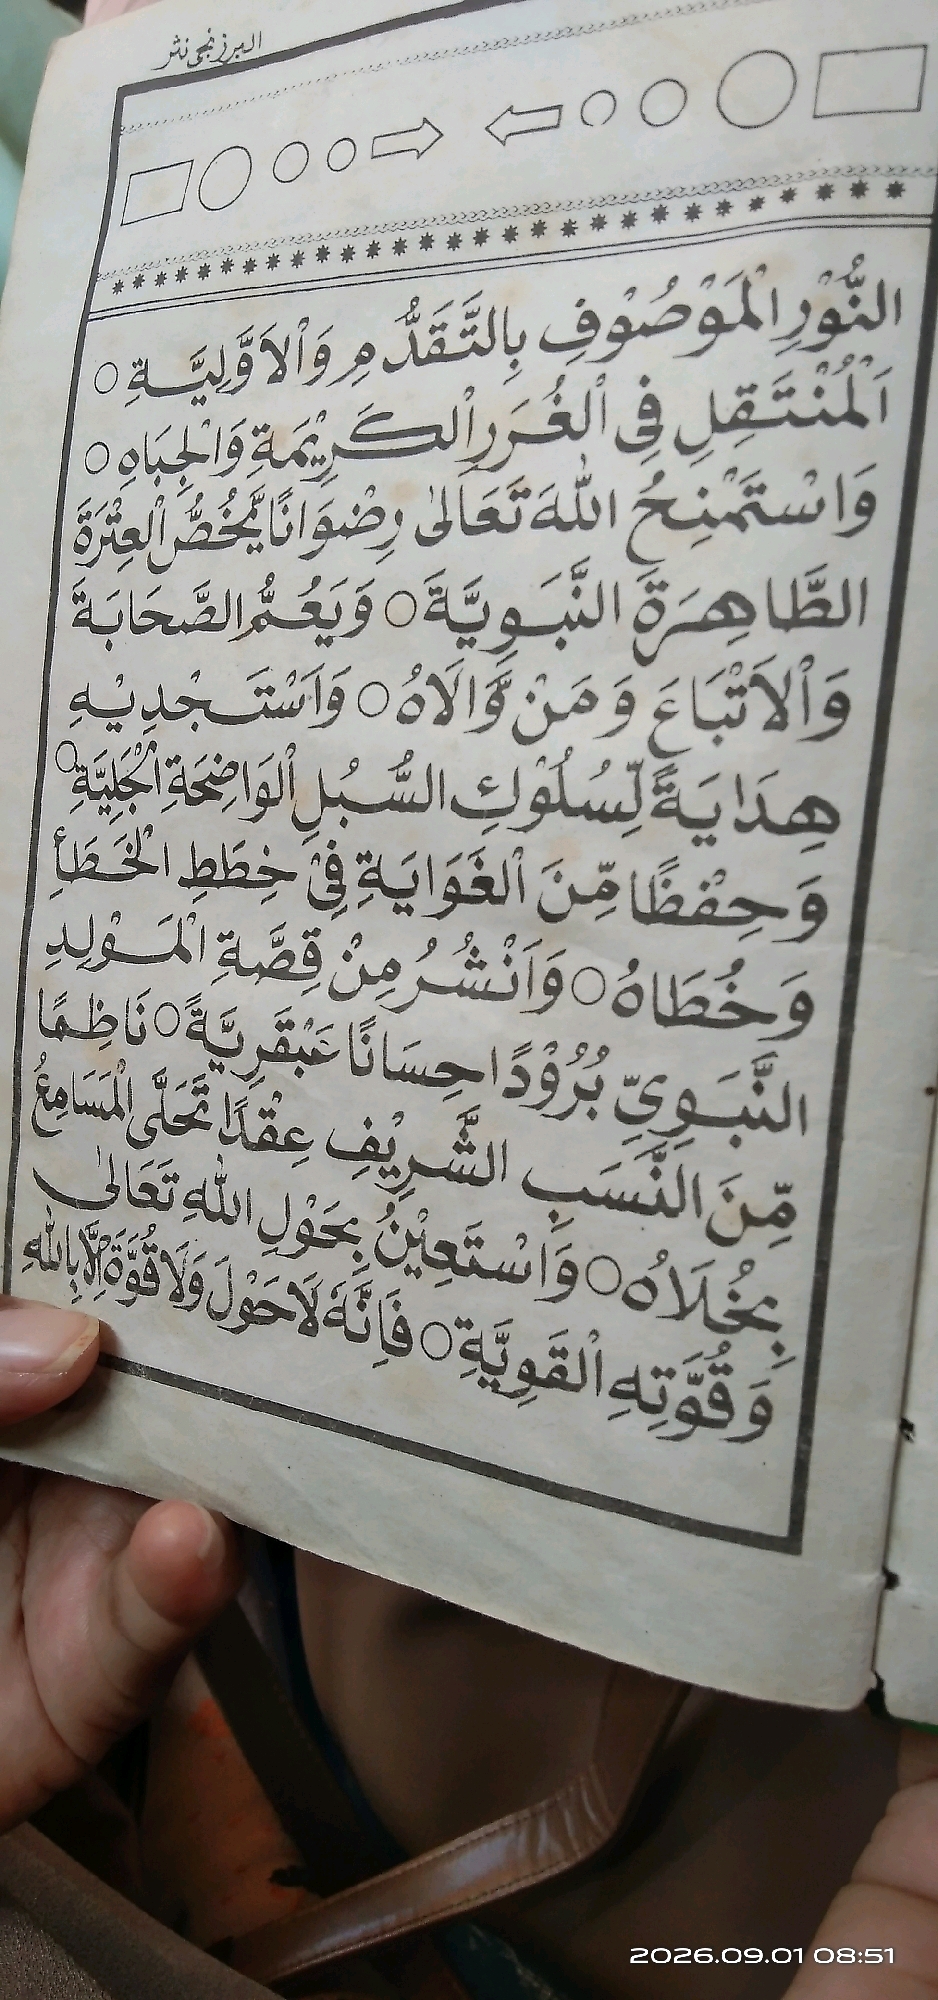 البرزنجي نثر
النُّوْرِ الْمَوْصُوْفِ بِالتَّقَدُّمِ وَاْلاَوَّلِيَّةِ ○
اَلْمُنْتَقِلِ فِى الْغُرَرِ الْكَرِيْمَةِ وَالْجِبَاهِ ○
وَاسْتَمْنِحُ اللهَ تَعَالٰى رِضْوَانًا يَّخُصُّ الْعِتْرَةَ
الطَّاهِرَةَ النَّبَوِيَّةَ ○ وَيَعُمُّ الصَّحَابَةَ
وَاْلاَتْبَاعَ وَمَنْ وَّالَاهُ ○ وَاَسْتَجْدِيْهِ
هِدَايَةً لِّسُلُوْكِ السُّبُلِ الْوَاضِحَةِ الْجَلِيَّةِ ○
وَحِفْظًا مِّنَ الْغَوَايَةِ فِيْ خِطَطِ الْخَطَأِ
وَخُطَاهُ ○ وَاَنْشُرُ مِنْ قِصَّةِ الْمَوْلِدِ
النَّبَوِيِّ بُرُوْدًا حِسَانًا عَبْقَرِيَّةً ○ نَاظِمًا
مِّنَ النَّسَبِ الشَّرِيْفِ عِقْدًا تَحَلَّى الْمَسَامِعُ
بِحُلَاهُ ○ وَاسْتَعِيْنُ بِحَوْلِ اللهِ تَعَالٰى
وَقُوَّتِهِ الْقَوِيَّةِ ○ فَاِنَّهُ لَاحَوْلَ وَلَاقُوَّةَ اِلَّا بِاللهِ
2026.09.01 08:51